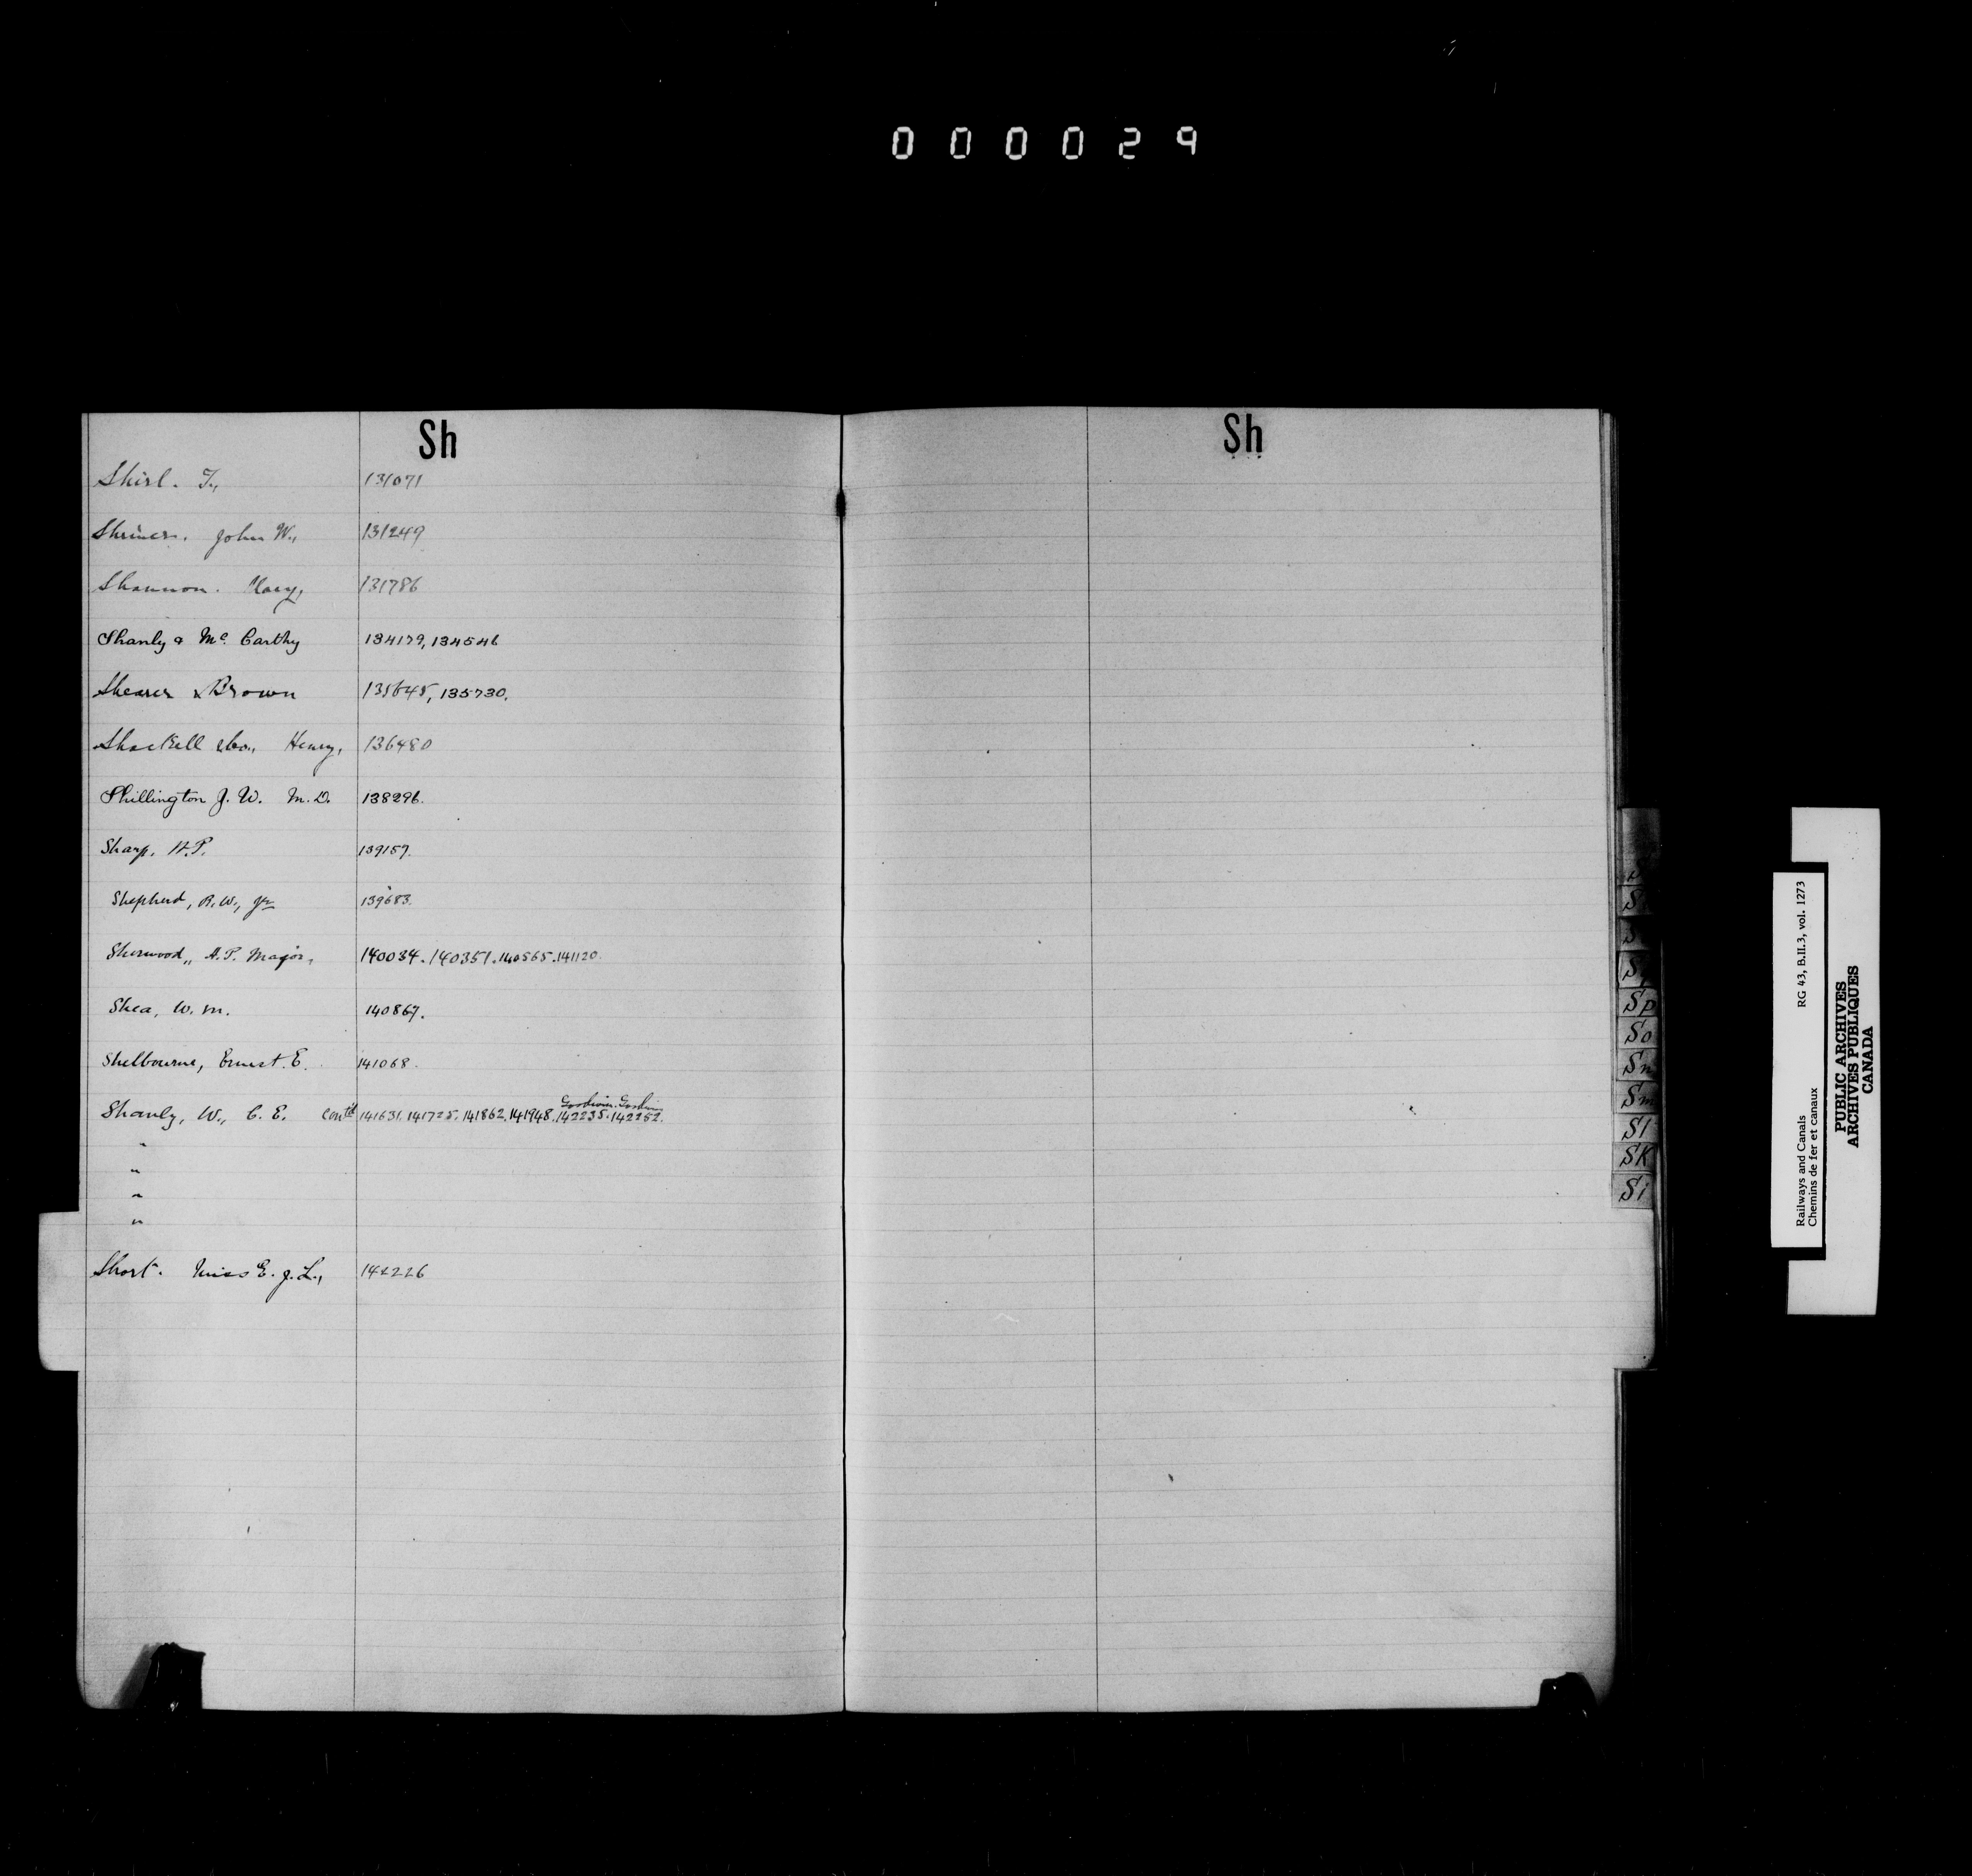 000029
Sh
Shirl. T., 131071
Shriner. John W., 131249
Shannon. Mary, 131786
Shanly & Mc. Carthy 134179, 134546
Shearer & Brown 135645, 135730.
Shackell & Co., Henry, 136480
Shillington J. W. M.D. 138296.
Sharp, H.P. 139157.
Shepherd, R.W., Jr 139683.
Sherwood,, A.P. Major, 140034. 140351. 140565. 141120.
Shea, W. M. 140867.
Shelbourne, Ernest. E. 141068.
Goodwin. Goodwin
Shanly, W., C. E. Contd 141631. 141725. 141862. 141948. 142235. 142252.
"
"
"
"
Short. Miss E. J. L., 142226
Sh
Sp
So
Sn
Sm
Sl
SK
Si
Railways and Canals RG 43, B.II.3, vol. 1273
Chemins de fer et canaux
PUBLIC ARCHIVES
ARCHIVES PUBLIQUES
CANADA